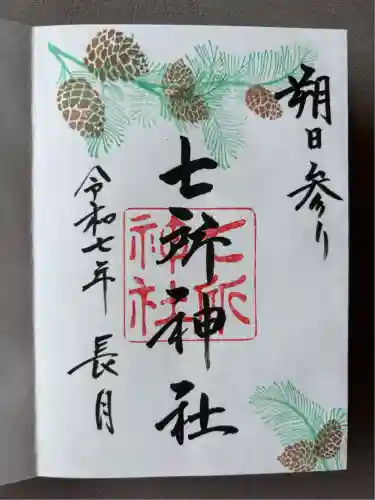 朔日参り
七所神社
七所神社
令和七年 長月